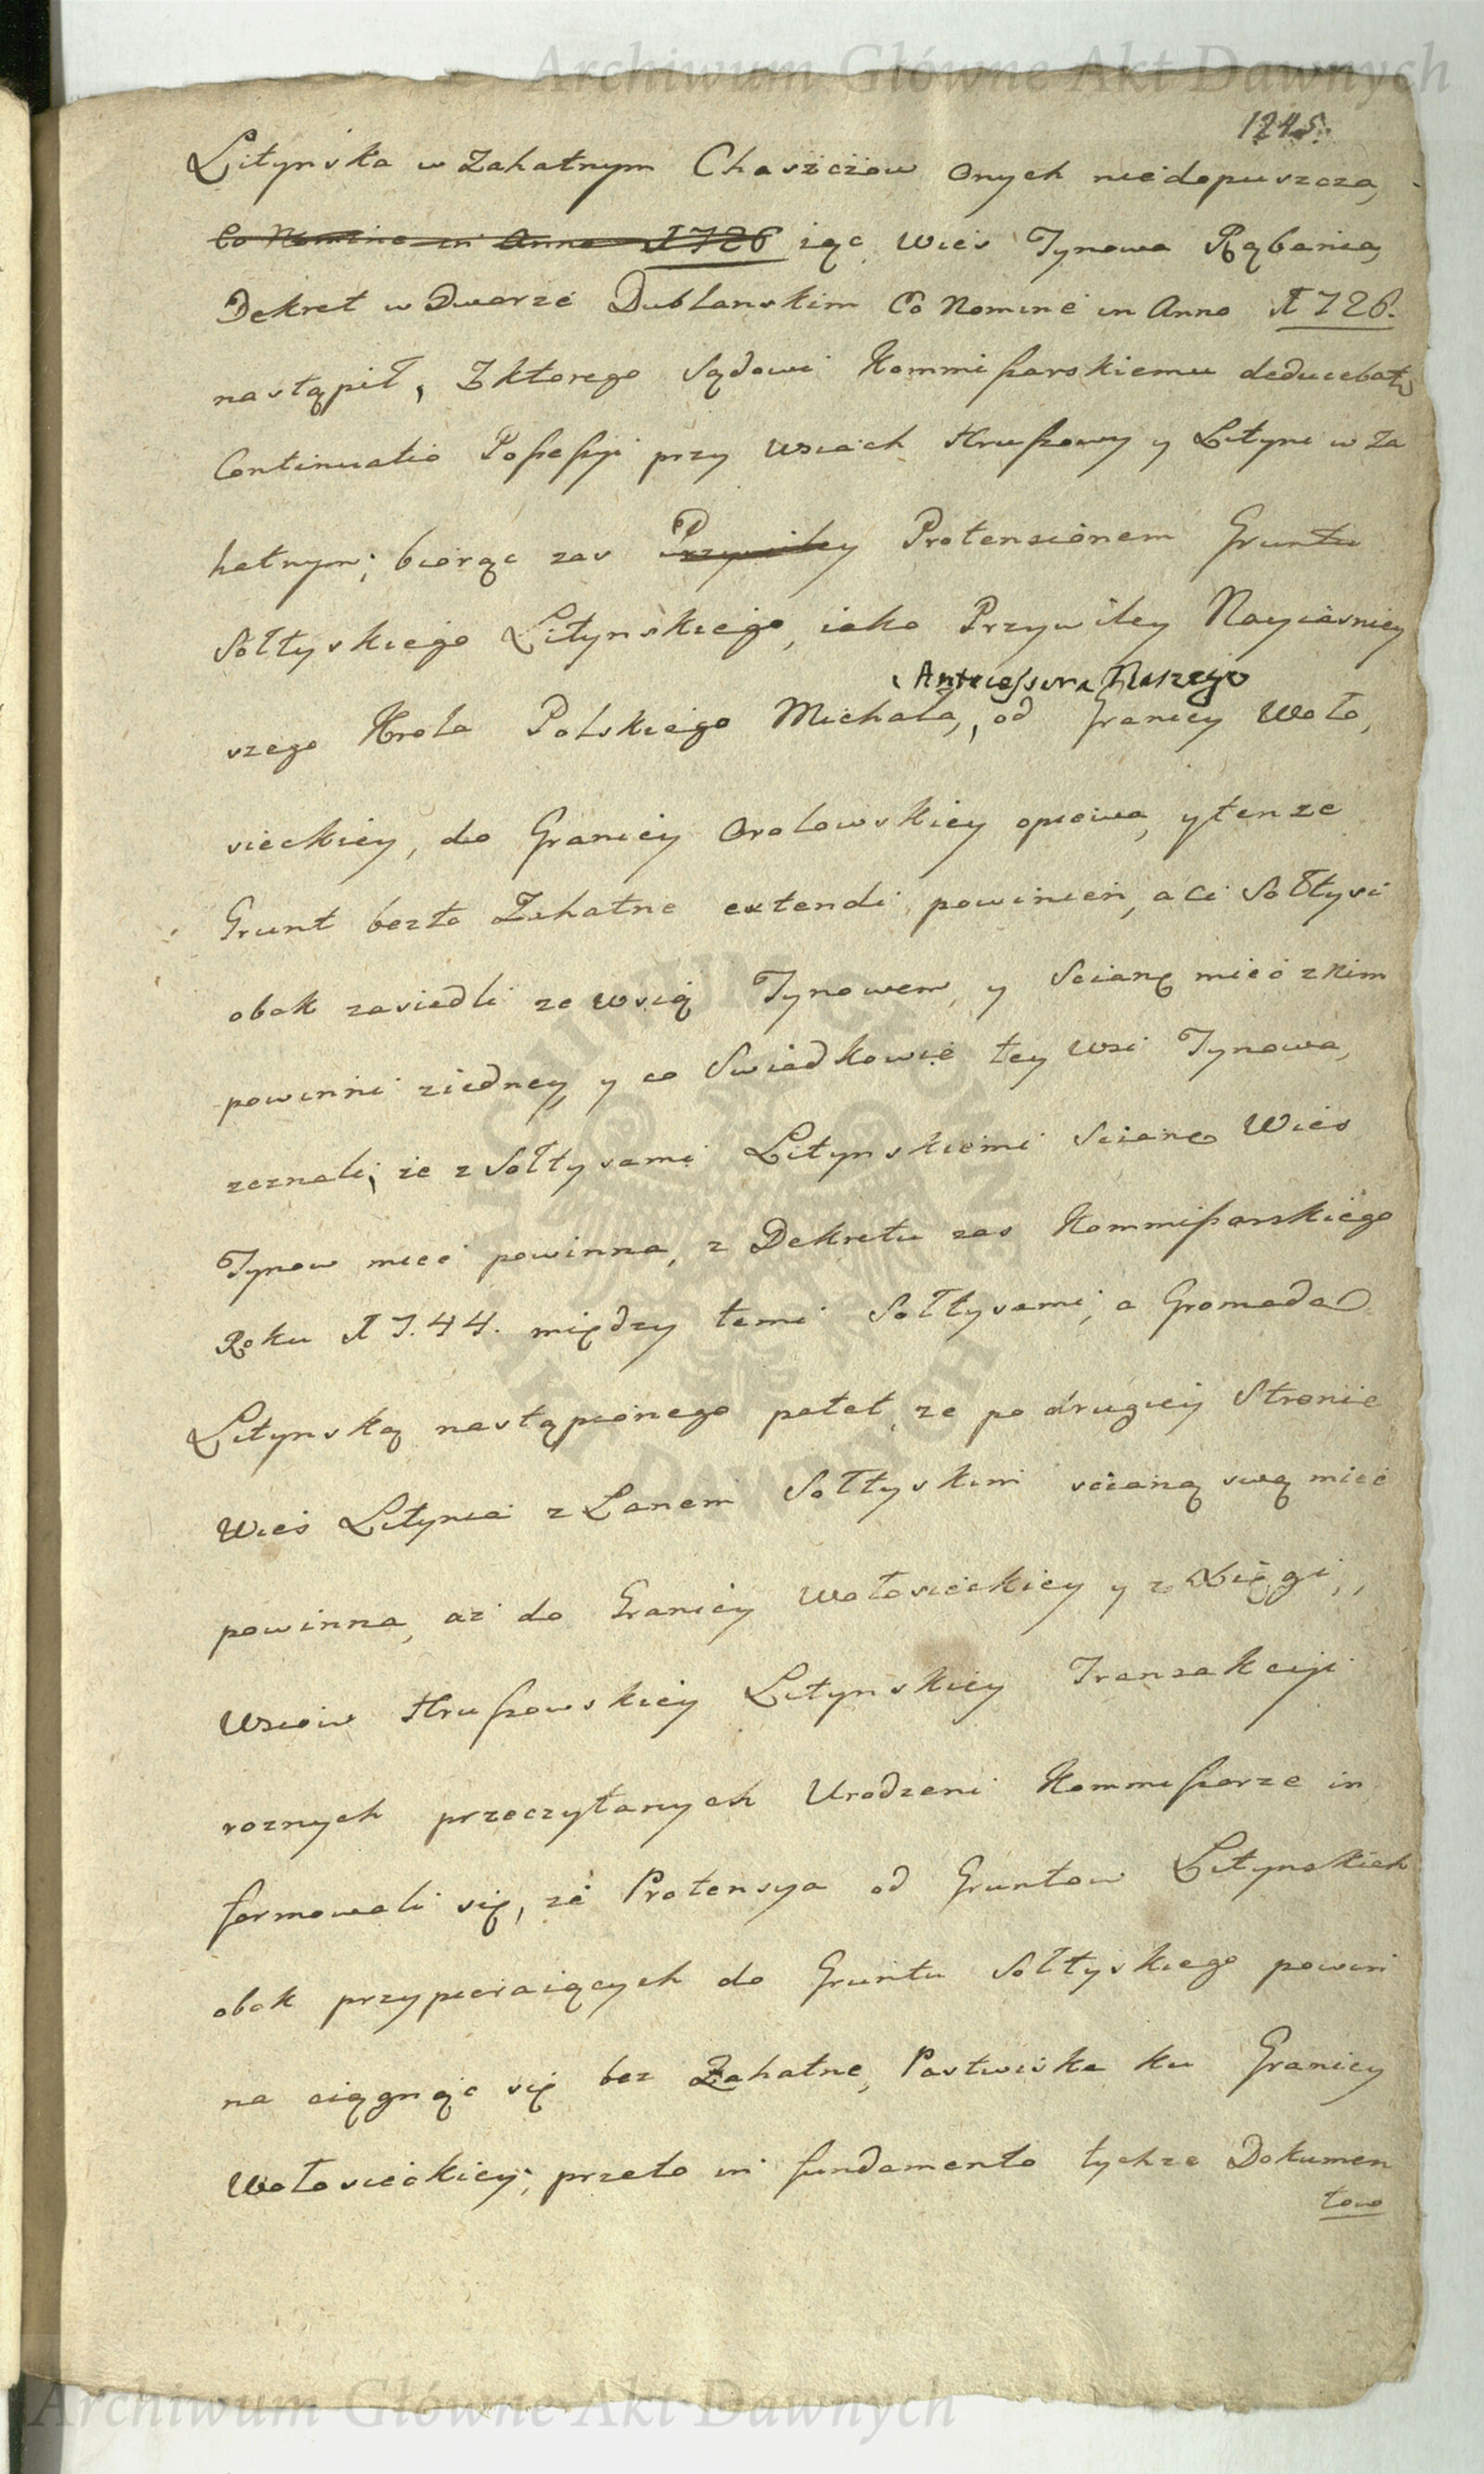 Archiwum Główne Akt Dawnych
1245.
Litynska w Zahatnym Chaszczow onych niedopuszcza,
Co Nomine in Anno 1726 iąc wies Tynowa Rąbania,
Dekret w Dworze Dublanskim Eo Nomine in Anno 1726.
nastąpił, Z ktorego Sądowi Kommißarskiemu deducebatur
Continuatio Poßeßyi przy wsiach Hrußowy y Lityni w Za
hatnym; biorąc zas Przywiley Protensionem Gruntu
Sołtyskiego Litynskiego, iako Przywiley Nayiasniey
Antecessora Naszego
szego Krola Polskiego Michala, od Granicy Woło,
sieckiey, do Granicy Orolowskiey opiewa, y tenze
Grunt bezto Zahatne extendi powinien, a ci Sołtysi
obok zasiedli ze wsią Tynowem, y Scianę miec z nim
powinni ziedney, y co Swiadkowie tey wsi Tynowa,
zeznali, ze z Sołtysami Litynskiemi Scianę Wies
Tynow miec powinna, z Dekretu zas Kommißarskiego
Roku 1744. między temi Sołtysami, a Gromadą
Litynską nastąpionego patet, ze po drugiey Stronie
Wies Litynia z Lanem Sołtyskim scianą swą miec
powinna, az do Granicy Wołosieckiey y z Xięgi,
Wsiow Hrußowskiey Litynskiey Tranzakcyi
roznych przeczytanych Urodzeni Kommißarze in
formowali się, ze Protensya od Gruntow Litynskich
obok przypieraiących do Gruntu Sołtyskiego powin
na ciągnąc się bez Zahatne, Pastwiska ku Granicy
Wołosieckiey; przeto in fundamento tychze Dokumen
tow
ARCHIWUM GŁÓWNE AKT DAWNYCH
Archiwum Główne Akt Dawnych